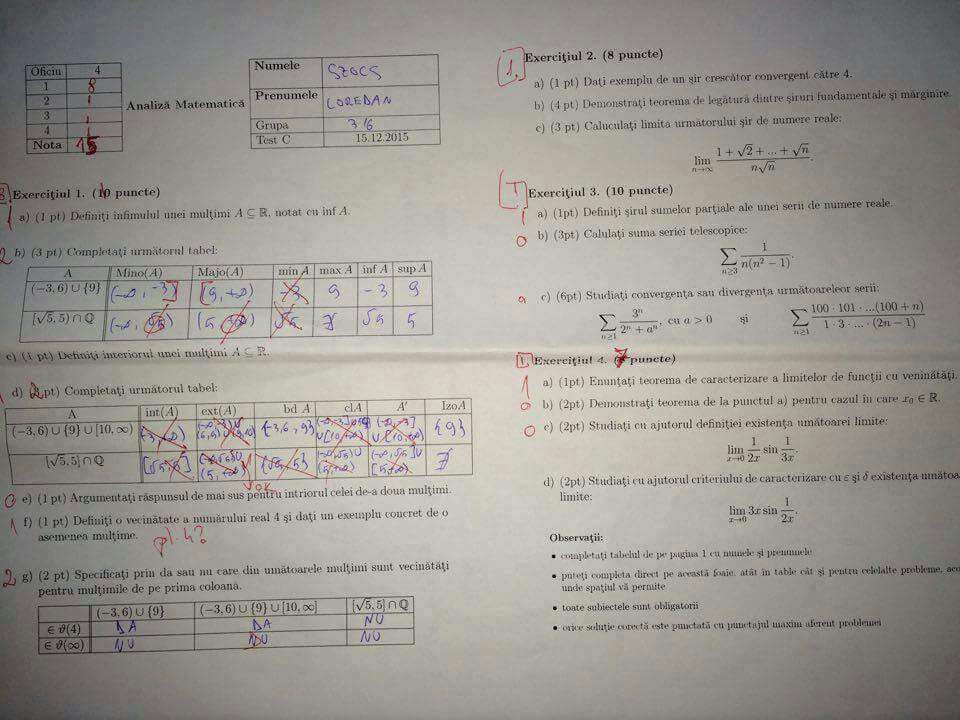 Oficiu 4
1 8
2 1
3 1
4 1
Nota 15
Analiză Matematică
Numele SZOCS
Prenumele LOREDAN
Grupa 316
Test C 15.12.2015
Exerciţiul 1. (10 puncte)
1 a) (1 pt) Definiţi infimulul unei mulţimi A ⊆ ℝ, notat cu inf A.
2 b) (3 pt) Completaţi următorul tabel:
A Mino(A) Majo(A) min A max A inf A sup A
(−3, 6) ∪ {9} (-∞, -3] [9, +∞) -3 9 -3 9
[√5, 5) ∩ ℚ (-∞, √5) (5, +∞) √5 ∄ √5 5
c) (1 pt) Definiţi interiorul unei mulţimi A ⊆ ℝ.
1 d) (2pt) Completaţi următorul tabel:
A int(A) ext(A) bd A clA A′ IzoA
(−3, 6) ∪ {9} ∪ [10, ∞) {-3,6,9} {9}
[√5, 5] ∩ ℚ [√5, 5] {√5, 5} ∄
OK
0 e) (1 pt) Argumentaţi răspunsul de mai sus pentru intriorul celei de-a doua mulţimi.
1 f) (1 pt) Definiţi o vecinătate a numărului real 4 şi daţi un exemplu concret de o
asemenea mulţime.
pt. 4?
2 g) (2 pt) Specificaţi prin da sau nu care din umătoarele mulţimi sunt vecinătăţi
pentru mulţimile de pe prima coloană.
(−3, 6) ∪ {9} (−3, 6) ∪ {9} ∪ [10, ∞] [√5, 5] ∩ ℚ
∈ ϑ(4) DA DA NU
∈ ϑ(∞) NU NU NU
1. Exerciţiul 2. (8 puncte)
a) (1 pt) Daţi exemplu de un şir crescător convergent către 4.
b) (4 pt) Demonstraţi teorema de legătură dintre şiruri fundamentale şi mărginire.
c) (3 pt) Caluculaţi limita următorului şir de numere reale:
lim n→∞ (1 + √2 + ... + √n) / (n√n).
1 Exerciţiul 3. (10 puncte)
1 a) (1pt) Definiţi şirul sumelor parţiale ale unei serii de numere reale.
0 b) (3pt) Calulaţi suma seriei telescopice:
∑ n≥3 1 / (n(n² − 1)).
c) (6pt) Studiaţi convergenţa sau divergenţa următoareleor serii:
∑ n≥1 3ⁿ / (2ⁿ + aⁿ), cu a > 0 şi ∑ n≥1 (100 · 101 · ...(100 + n)) / (1 · 3 · ... · (2n − 1))
1. Exerciţiul 4. (7 puncte)
1 a) (1pt) Enunţaţi teorema de caracterizare a limitelor de funcţii cu veninătăţi.
0 b) (2pt) Demonstraţi teorema de la punctul a) pentru cazul în care x₀ ∈ ℝ.
0 c) (2pt) Studiaţi cu ajutorul definiţiei existenţa umătoarei limite:
lim x→0 1/2x sin 1/3x.
d) (2pt) Studiaţi cu ajutorul criteriului de caracterizare cu ε şi δ existenţa umătoa
limite:
lim x→0 3x sin 1/2x.
Observaţii:
• completaţi tabelul de pe pagina 1 cu numele şi prenumele
• puteţi completa direct pe această foaie, atât în table cât şi pentru celelalte probleme, aco
unde spaţiul vă permite
• toate subiectele sunt obligatorii
• orice soluţie corectă este punctată cu punctajul maxim aferent problemei